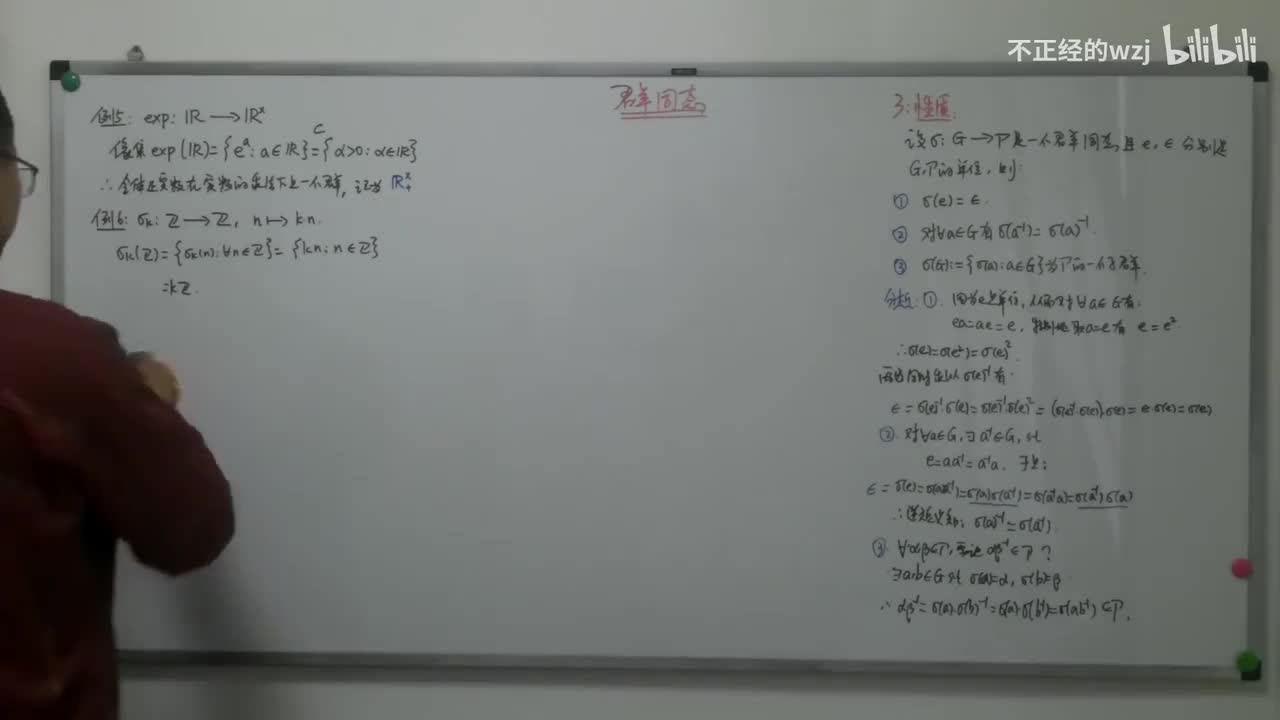 不正经的wzj bilibili
群同态
例5: exp: ℝ → ℝˣ
像集 exp(ℝ)={eᵃ: a∈ℝ}={α>0: α∈ℝ}
⊂
∴ 全体正实数在实数的乘法下是一个群, 记为 ℝ₊ˣ
例6: σₖ: ℤ → ℤ, n ↦ kn.
σₖ(ℤ)={σₖ(n): ∀n∈ℤ}={kn: n∈ℤ}
=kℤ.
3. 性质.
设σ: G → Γ是一个群同态, 且 e, ϵ 分别是
G,Γ的单位, 则:
① σ(e)=ϵ.
② 对∀a∈G有σ(a⁻¹)=σ(a)⁻¹.
③ σ(G):={σ(a): a∈G}为Γ的一个子群.
分析: ①. 因为e是单位, 从而对∀a∈G有:
ea=ae=e, 特别地取a=e有 e=e²
∴σ(e)=σ(e²)=σ(e)².
两边同时乘以σ(e)⁻¹有:
ϵ=σ(e)⁻¹·σ(e)=σ(e)⁻¹·σ(e)²=(σ(e)⁻¹·σ(e))·σ(e)=ϵ·σ(e)=σ(e)
②. 对∀a∈G, ∃a⁻¹∈G, st
e=aa⁻¹=a⁻¹a. 于是:
ϵ=σ(e)=σ(aa⁻¹)=σ(a)σ(a⁻¹)=σ(a⁻¹a)=σ(a⁻¹)σ(a)
∴ : σ(a)⁻¹=σ(a⁻¹).
③. ∀α,β∈Γ, 要证 αβ⁻¹∈Γ?
∃a,b∈G st σ(a)=α, σ(b)=β
∴ αβ⁻¹=σ(a)·σ(b)⁻¹=σ(a)·σ(b⁻¹)=σ(ab⁻¹)∈Γ.